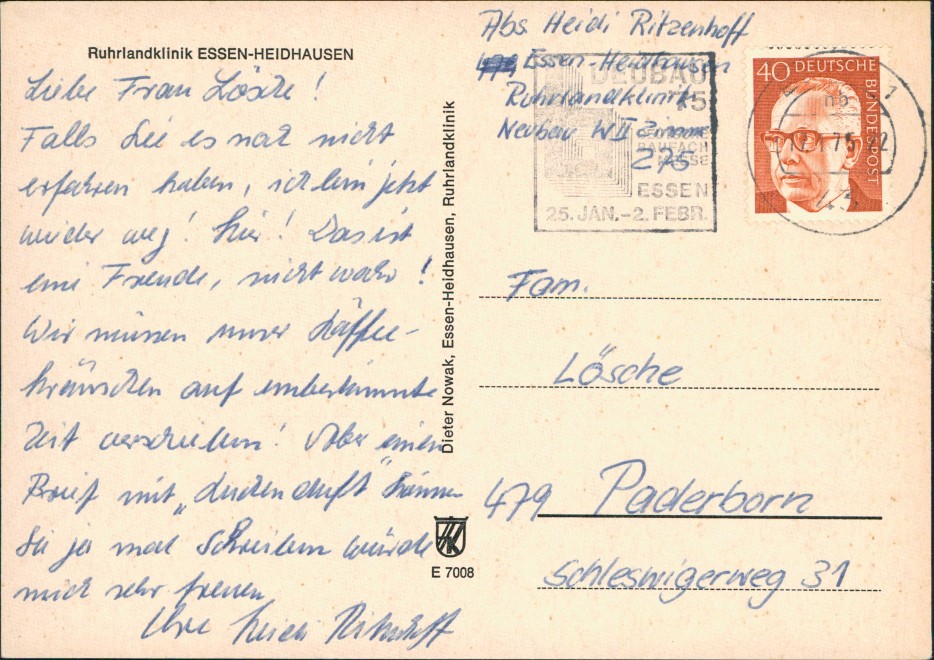 Ruhrlandklinik ESSEN-HEIDHAUSEN
Liebe Frau Lösche!
Falls Sie es noch nicht
erfahren haben, ich bin jetzt
wieder weg! Hier! Das ist
eine Freude, nicht wahr!
Wir müssen unser Kaffee-
kränzchen auf unbestimmte
Zeit verschieben! Aber einen
Brief mit „ können
Sie ja mal schreiben würde
mich sehr freuen
Ihre Heidi Ritzenhoff
Dieter Nowak, Essen-Heidhausen, Ruhrlandklinik
E 7008
Abs. Heidi Ritzenhoff
Essen-Heidhausen
Ruhrlandklinik
Neubau W II Zimm
275
DEUBAU
75
BAUFACH
MESSE
ESSEN
25. JAN.-2. FEBR.
40 DEUTSCHE
BUNDESPOST
Fam.
Lösche
479 Paderborn
Schleswigerweg 31